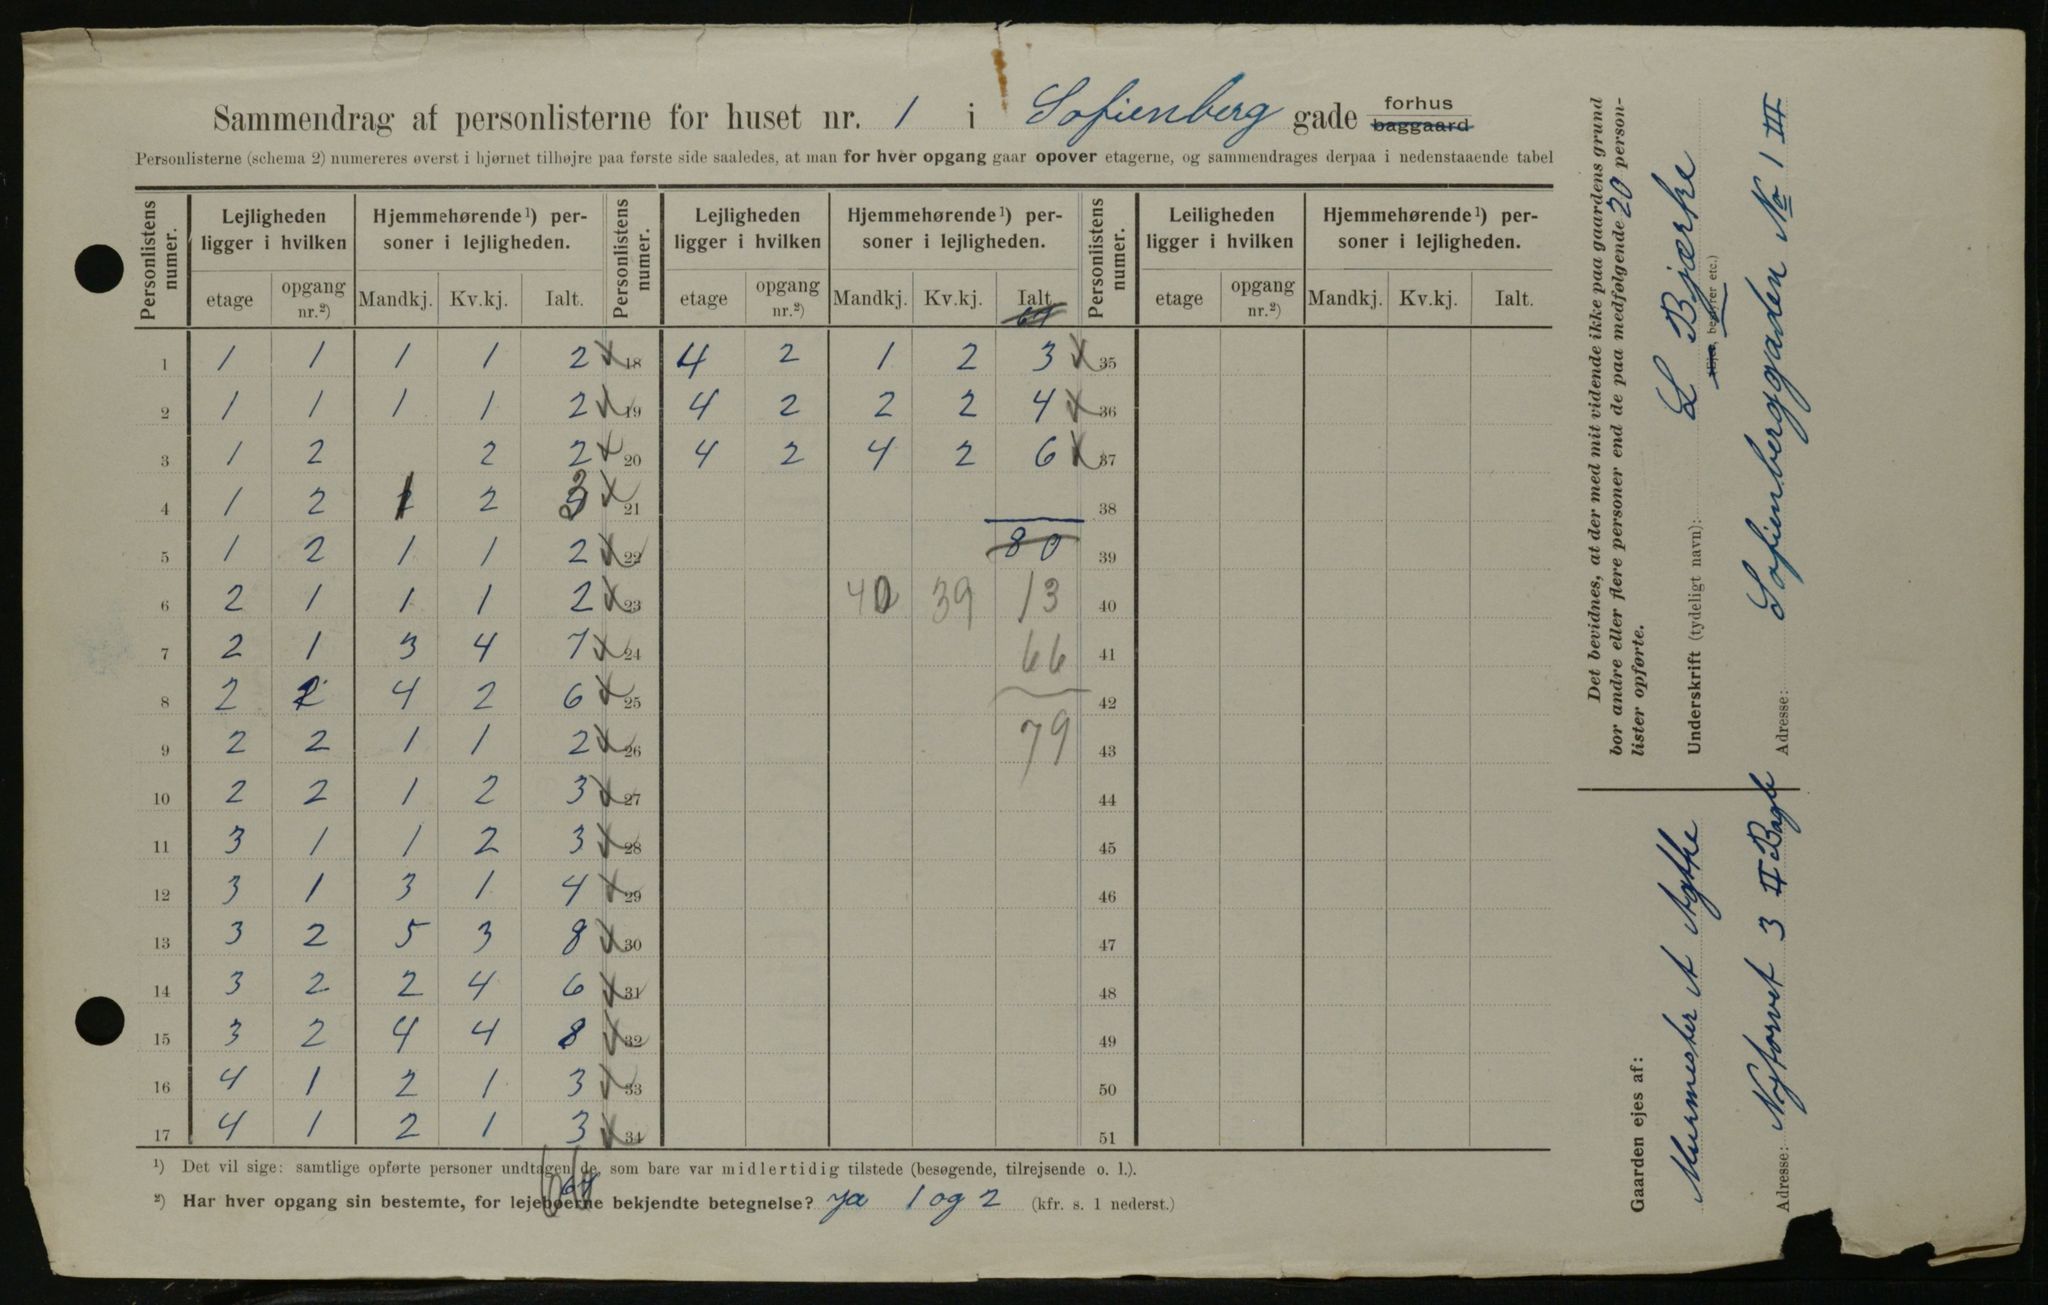 Sammendrag af personlisterne for huset nr. 1 i Sofienberg gade forhus baggaard
Personlisterne (schema 2) numereres øverst i hjørnet tilhøjre paa første side saaledes, at man for hver opgang gaar opover etagerne, og sammendrages derpaa i nedenstaaende tabel
Personlistens numer. Lejligheden ligger i hvilken Hjemmehørende¹) personer i lejligheden. Personlistens numer. Lejligheden ligger i hvilken Hjemmehørende¹) personer i lejligheden. Personlistens numer. Leiligheden ligger i hvilken Hjemmehørende¹) personer i lejligheden.
etage opgang nr.²) Mandkj. Kv.kj. Ialt. etage opgang nr.²) Mandkj. Kv.kj. Ialt. etage opgang nr.²) Mandkj. Kv.kj. Ialt.
1 1 1 1 1 2 18 4 2 1 2 3 35
2 1 1 1 1 2 19 4 2 2 2 4 36
3 1 2 2 2 20 4 2 4 2 6 37
4 1 2 1 2 3 21 38
5 1 2 1 1 2 22 80 39
6 2 1 1 1 2 23 40 39 13 40
7 2 1 3 4 7 24 66 41
8 2 2 4 2 6 25 42
9 2 2 1 1 2 26 79 43
10 2 2 1 2 3 27 44
11 3 1 1 2 3 28 45
12 3 1 3 1 4 29 46
13 3 2 5 3 8 30 47
14 3 2 2 4 6 31 48
15 3 2 4 4 8 32 49
16 4 1 2 1 3 33 50
17 4 1 2 1 3 34 51
¹) Det vil sige: samtlige opførte personer undtagen de, som bare var midlertidig tilstede (besøgende, tilrejsende o. l.).
66 67
²) Har hver opgang sin bestemte, for lejeboerne bekjendte betegnelse? ja 1 og 2 (kfr. s. 1 nederst.)
Det bevidnes, at der med mit vidende ikke paa gaardens grund
bor andre eller flere personer end de paa medfølgende 20 person-
lister opførte.
Underskrift (tydeligt navn): L Bjærke
(Ejer, bestyrer etc.)
Adresse: Sofienberggaden No 1 III
Gaarden ejes af:
Murmester A
Adresse: Nytorvet 3 II Bagb